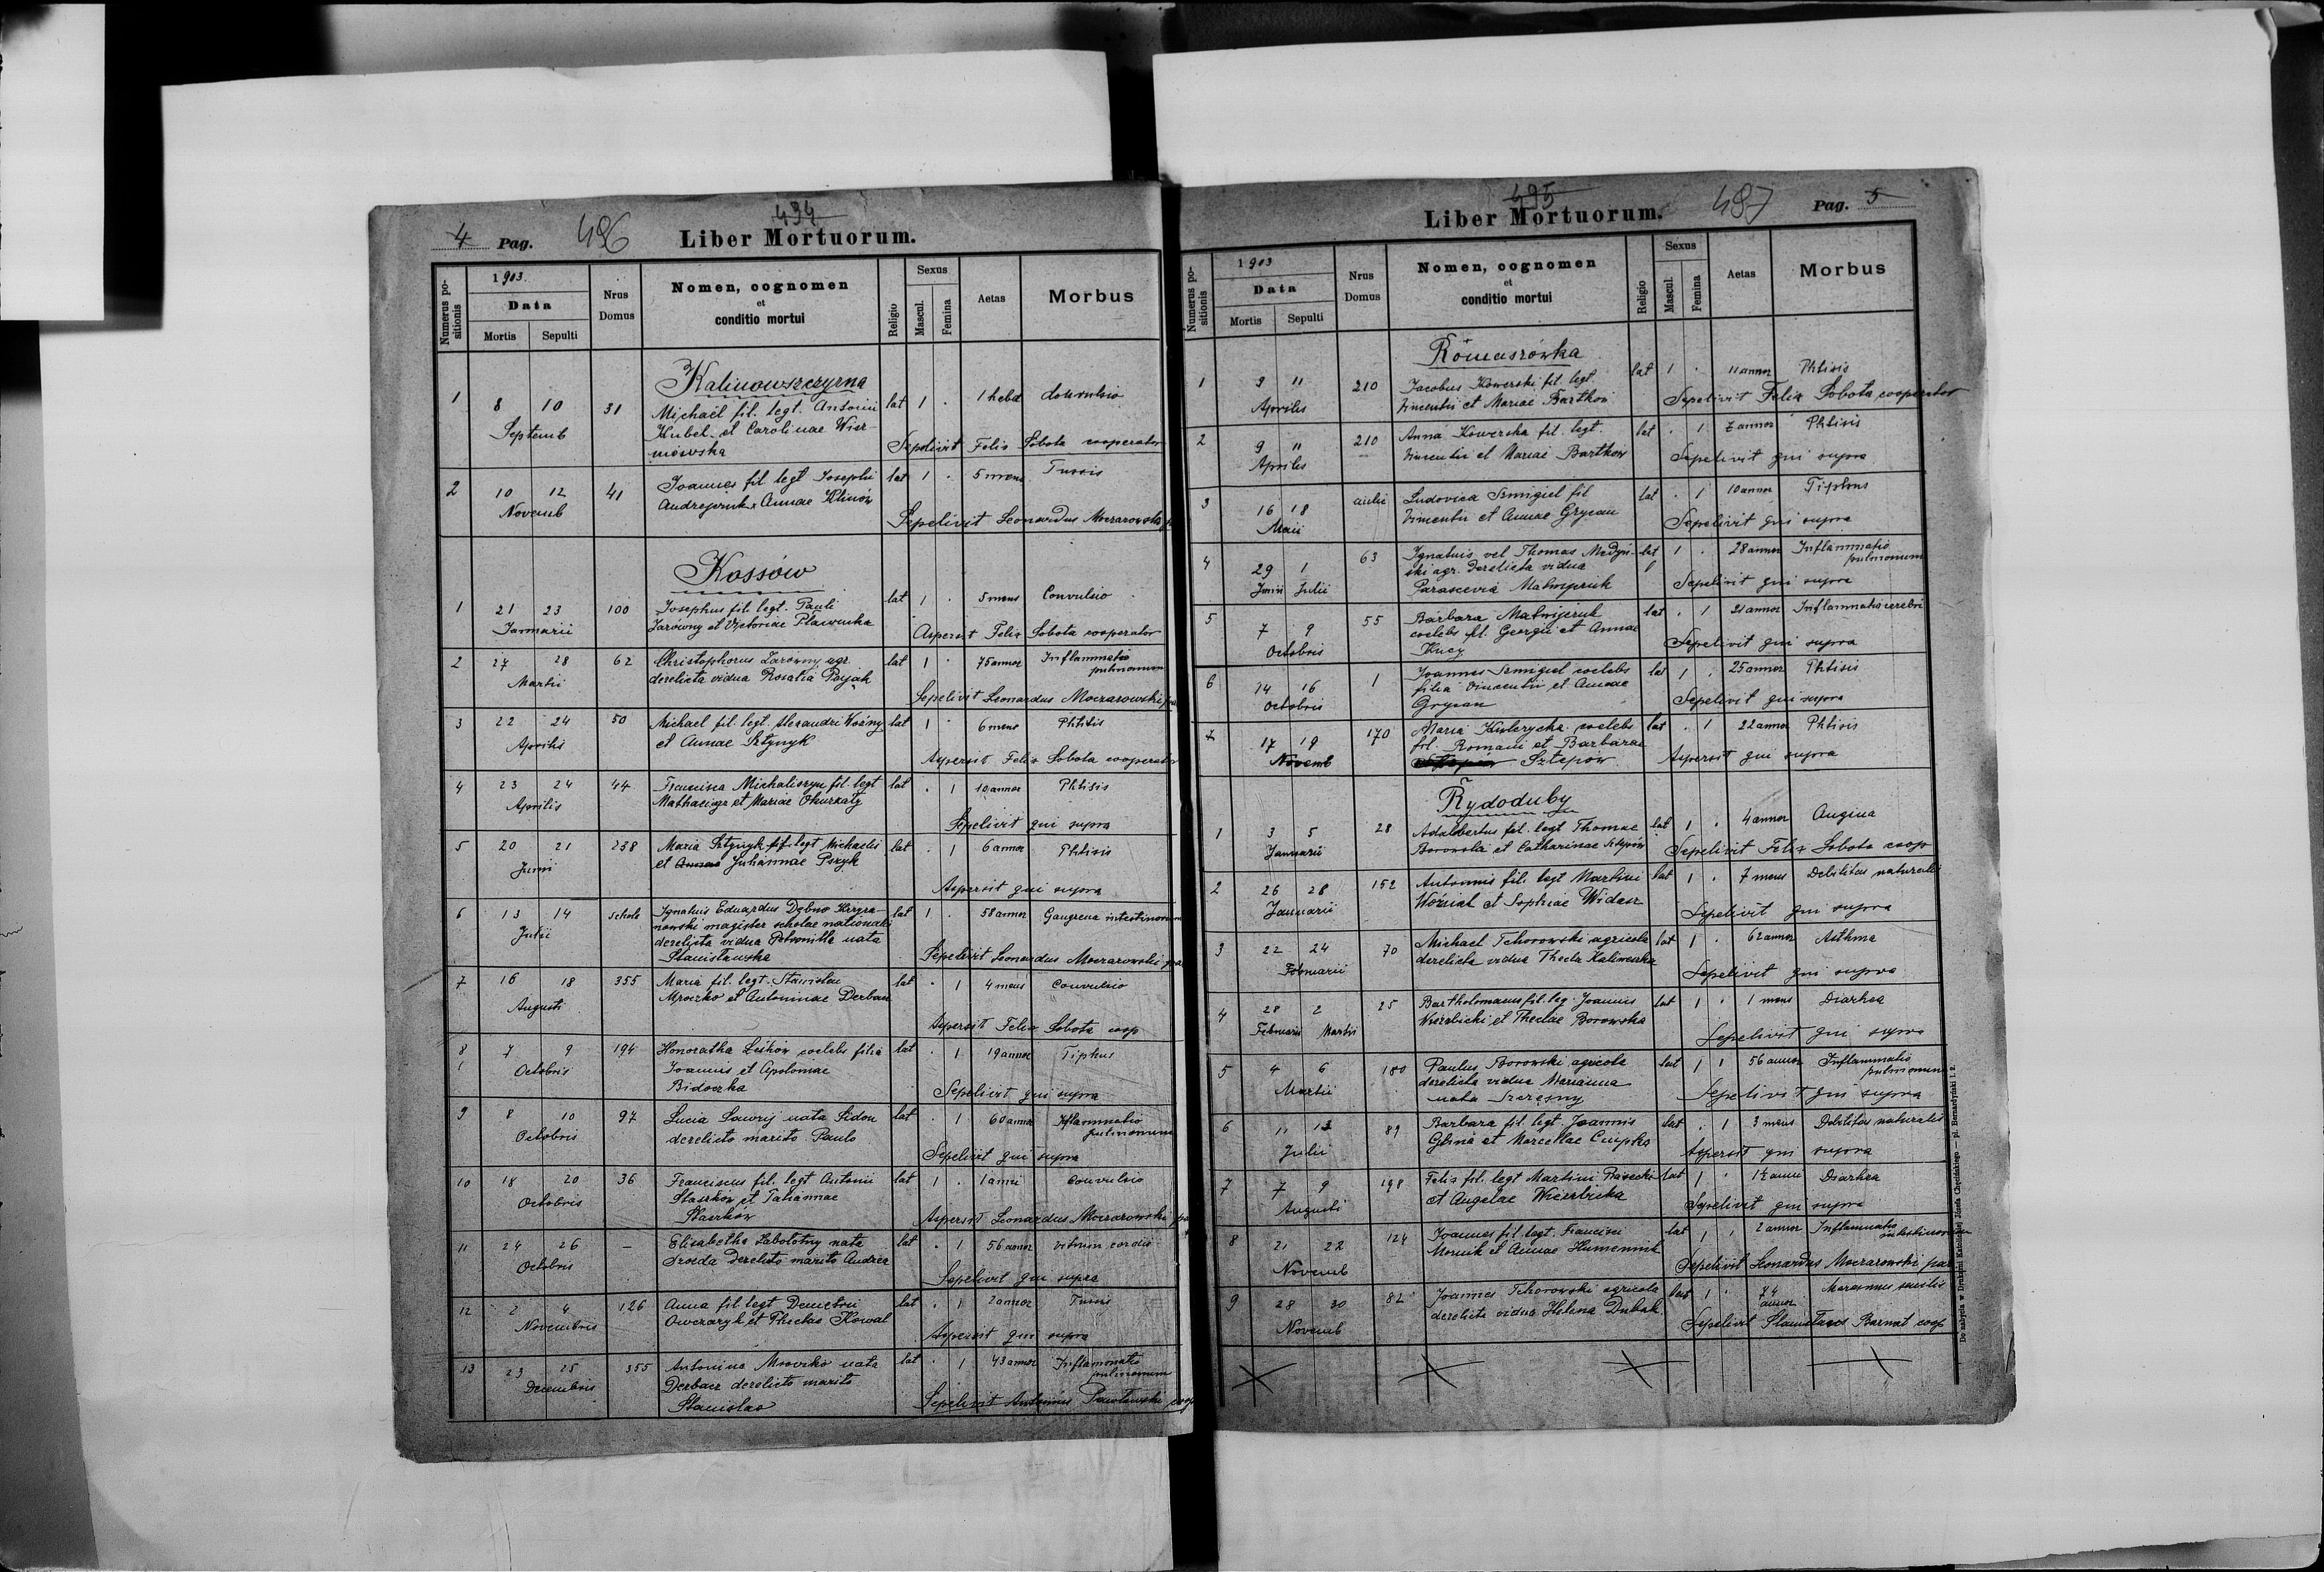 4 Pag. 496 434 Liber Mortuorum.
Numerus positionis
1903.
Data
Mortis Sepulti
Nrus Domus
Nomen, cognomen
et
conditio mortui
Religio
Sexus
Mascul. Femina
Aetas
Morbus
Kalinowszczyzna
1 8 10 31 Michaël fil. legt. Antonii lat 1 . 1 hebd Convulsio
Septemb Kubel et Carolinae
mowska Sepelivit Felix Sobota cooperator
2 10 12 41 Joannes fil legt Josephi lat 1 . 5 mens Tussis
Novemb Andrejczuk x Annae Klimów
Sepelivit Leonardus Moczarowski
Kossów
1 21 23 100 Josephus fil. legt. Pauli lat 1 . 5 mens Convulsio
Januarii Zarówny et Victoriae Plawucka
Aspersit Felix Sobota cooperator
2 27 28 62 Christophorus Zarówny agr. lat 1 . 75 annor Inflammatio
Martii derelicta vidua Rosalia pulmonum
Sepelivit Leonardus Moczarowski
3 22 24 50 Michael fil. legt. Alexandri Woźny lat 1 . 6 mens Phtisis
Aprilis et Annae Sztynyk
Aspersit Felix Sobota cooperator
4 23 24 44 Francisca Michaliszyn fil. legt lat . 1 10 annor Phtisis
Aprilis Mathaei agr et Mariae
Sepelivit qui supra
5 20 21 238 Maria Sztynyk fil legt Michaelis lat . 1 6 annor Phtisis
Junii et Annae Juliannae Pszyk
Aspersit qui supra
6 13 14 schola Ignatius Eduardus Dębno lat 1 . 58 annor Gangrena intestinorum
Julii nowski magister scholae nationalis
derelicta vidua Petronilla nata
Stanisławska Sepelivit Leonardus Moczarowski
7 16 18 355 Maria fil. legt. Stanislai lat . 1 4 mens Convulsio
Augusti Mroczko et Antoninae Derbacz
Aspersit Felix Sobota coop
8 7 9 194 Honoratha Leśków coelebs filia lat . 1 19 annor Tiphus
Octobris Joannis et Apoloniae
Bidoczka Sepelivit qui supra
9 8 10 97 Lucia Ławrij nata Sidon lat . 1 60 annor Inflammatio
Octobris derelicto marito Paulo pulmonum
Sepelivit qui supra
10 18 20 36 Franciscus fil. legt Antonii lat 1 . 1 anni Convulsio
Octobris Staszków et Tatiannae
Staszków Aspersit Leonardus Moczarowski
11 24 26 — Elisabetha Zabolotny nata lat . 1 56 annor vitium cordis
Octobris Drozda derelicto marito Andrea
Sepelivit qui supra
12 2 4 126 Anna fil legt Demetrii lat . 1 2 annor Tussis
Novembris Owczaryk et Theclae Kowal
Aspersit qui supra
13 23 25 355 Antonina Mroczko nata lat . 1 43 annor Inflammatio
Decembris Derbacz derelicto marito pulmonum
Stanislao Sepelivit Antonius Pawłowski coop
495 Liber Mortuorum. 497 Pag. 5
Numerus positionis
1903
Data
Mortis Sepulti
Nrus Domus
Nomen, cognomen
et
conditio mortui
Religio
Sexus
Mascul. Femina
Aetas
Morbus
Romaszówka
1 9 11 210 Jacobus Kowerski fil legt. lat 1 . 11 annor Phtisis
Aprilis Vincentii et Mariae Bartkow Sepelivit Felix Sobota cooperator
2 9 11 210 Anna Kowerska fil. legt. lat . 1 7 annor Phtisis
Aprilis Vincentii et Mariae Bartkow Sepelivit qui supra
3 16 18 Ludovica Szmigiel fil lat . 1 10 annor Tiphus
Maii Vincentii et Annae Grycan Sepelivit qui supra
4 29 1 63 Ignatius vel Thomas Medyń- lat 1 . 28 annor Inflammatio
Junii Julii ski agr. derelicta vidua pulmonum
Parascevia Matwijczuk Sepelivit qui supra
5 7 9 55 Barbara Matwijczuk lat . 1 21 annor Inflammatio cerebri
Octobris coelebs fil. Georgii et Annae
Kucy Sepelivit qui supra
6 14 16 1 Joannes Szmigiel coelebs lat 1 . 25 annor Phtisis
Octobris filia Vincentii et Annae
Grycan Sepelivit qui supra
7 17 19 170 Maria coelebs lat . 1 22 annor Phtisis
Novemb fil. Romani et Barbarae
Sztepów Aspersit qui supra
Rydoduby
1 3 5 28 Adalbertus fil. legt Thomae lat 1 . 4 annor Angina
Januarii Borowski et Catharinae Sztepów Sepelivit Felix Sobota coop
2 26 28 152 Antonius fil. legt Martini lat 1 . 7 mens Debilitas naturalis
Januarii Woźniak et Sophiae Widasz Sepelivit qui supra
3 22 24 70 Michael Tchorowski agricola lat 1 . 62 annor Asthma
Februarii derelicta vidua Thecla Kaliniewska Sepelivit qui supra
4 28 2 25 Bartholomaeus fil. leg. Joannis lat 1 . 1 mens Diarhea
Februarii Martii Wierzbicki et Theclae Borowska
Sepelivit qui supra
5 4 6 180 Paulus Borowski agricola lat 1 1 56 annor Inflammatio
Martii derelicta vidua Marianna pulmonum
nata Szczęsny Sepelivit qui supra
6 11 13 89 Barbara fil. legt. Joannis lat . 1 3 mens Debilitas naturalis
Julii Glina et Marcellae Aspersit qui supra
7 7 9 198 Felix fil. legt Martini Piasecki lat 1 . 1½ anni Diarhea
Augusti et Angelae Wierzbicka Sepelivit qui supra
8 21 22 124 Joannes fil. legt. Francisci lat 1 . 2 annor Inflammatio
Novemb Mornik et Annae Humeniuk intestinorum
Sepelivit Leonardus Moczarowski par
9 28 30 82 Joannes Tchorowski agricola lat 1 . 74 annor Marasmus senilis
Novemb derelicta vidua Helena Dubak
Sepelivit Stanislaus Barnat coop
Do nabycia w Drukarni Katolickiej Józefa Chęcińskiego — pl. Bernardyński l. 2.